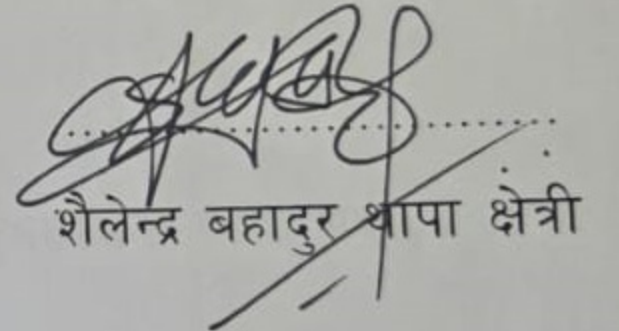 शैलेन्द्र बहादुर थापा क्षेत्री